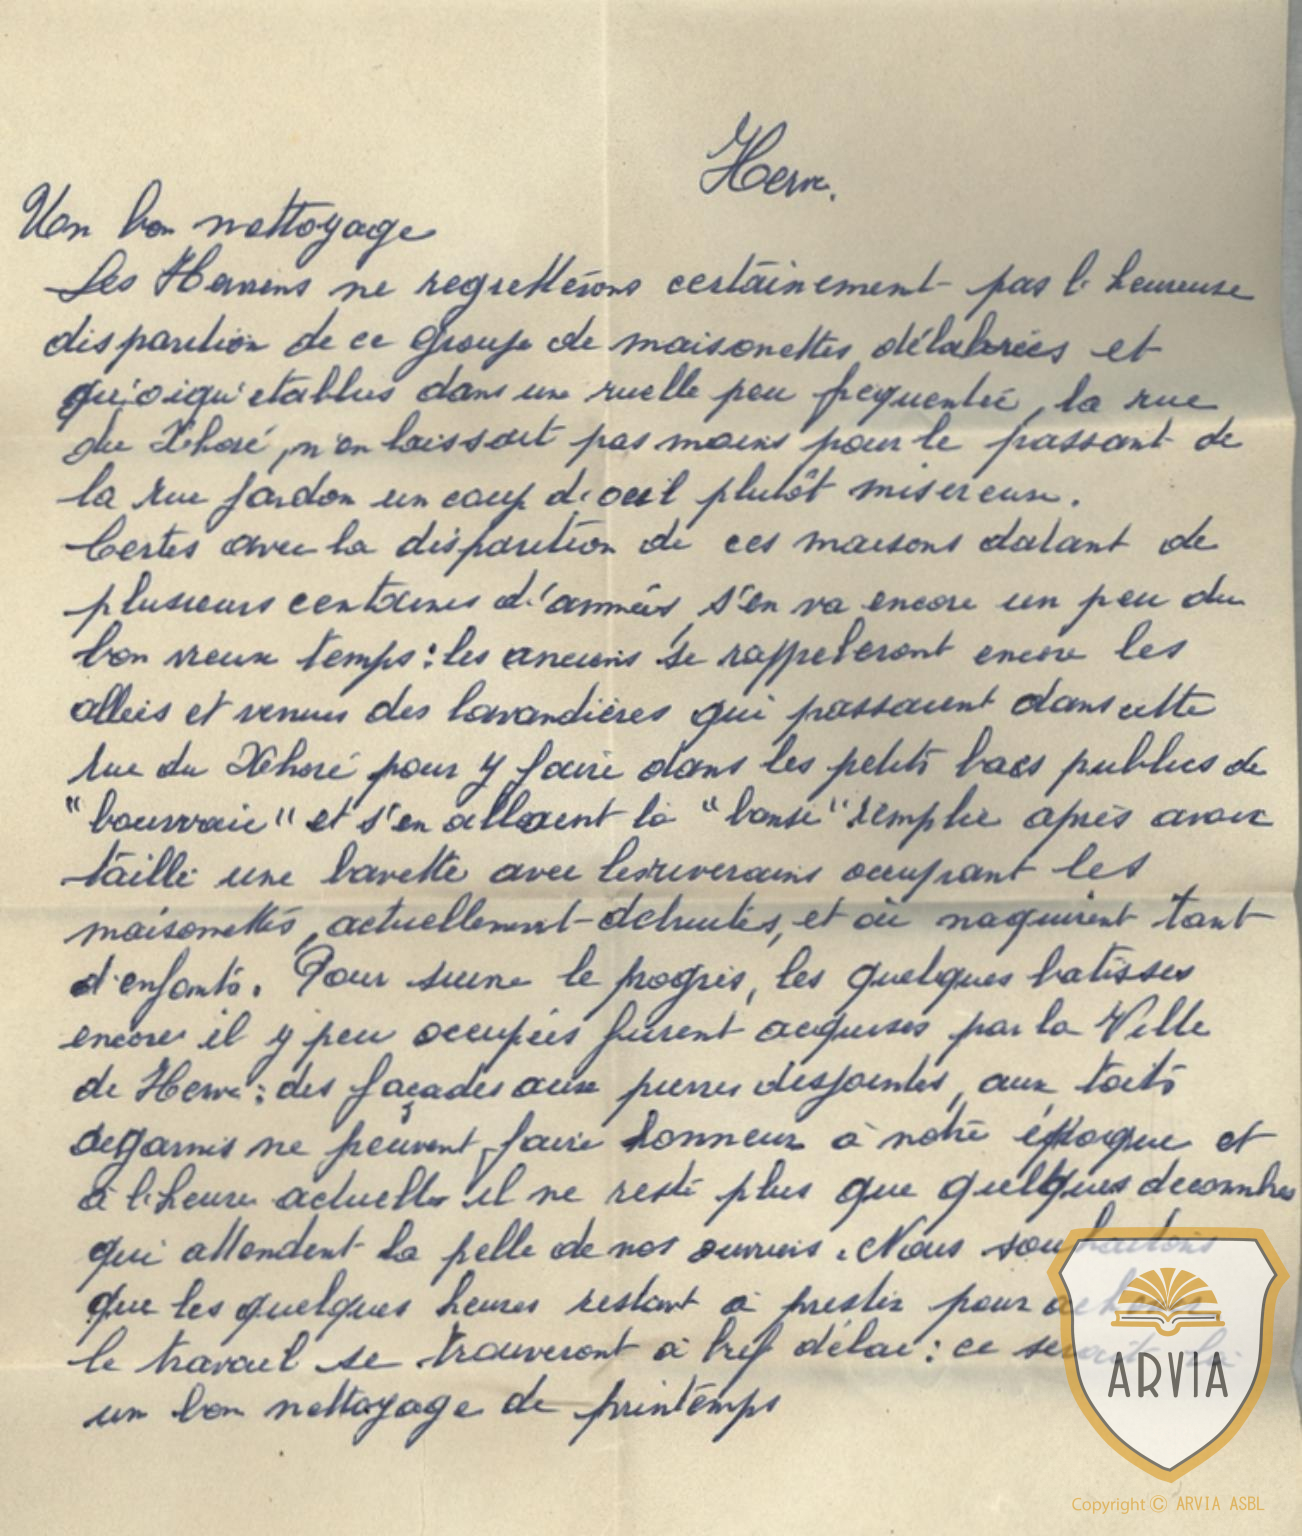 Herve.
Un bon nettoyage
Les Herviens ne regretterons certainement pas l'heureuse
disparition de ce groupe de maisonettes délabrées et
qu'oiqu'etablies dans une ruelle peu frequentée, la rue
du Xhoré, n'en laissait pas moins pour le passant de
la rue Jardon un coup d'oeil plutôt misereux.
Certes avec la disparition de ces maisons datant de
plusieurs centaines d'années, s'en va encore un peu du
bon vieux temps: les anciens se rappeleront encore les
allées et venues des lavandières qui passaient dans cette
rue du Xhoré pour y faire dans les petits bacs publics de
"bouwaie" et s'en allaient la "banse" remplie après avoir
taillé une bavette avec les riverains occupant les
maisonettes, actuellement detruites, et où naquirent tant
d'enfants. Pour suivre le progrès, les quelques batisses
encore il y peu occupées furent acquises par la Ville
de Herve: des façades aux pierres desjointes, aux toits
degarnis ne peuvent faire honneur à notre époque et
à l'heure actuelle il ne reste plus que quelques decombres
qui attendent la pelle de nos ouvriers. Nous souhaitons
que les quelques heures restant à prester pour
le travail se trouveront à bref délai: ce serait là
un bon nettoyage de printemps
ARVIA
Copyright © ARVIA ASBL